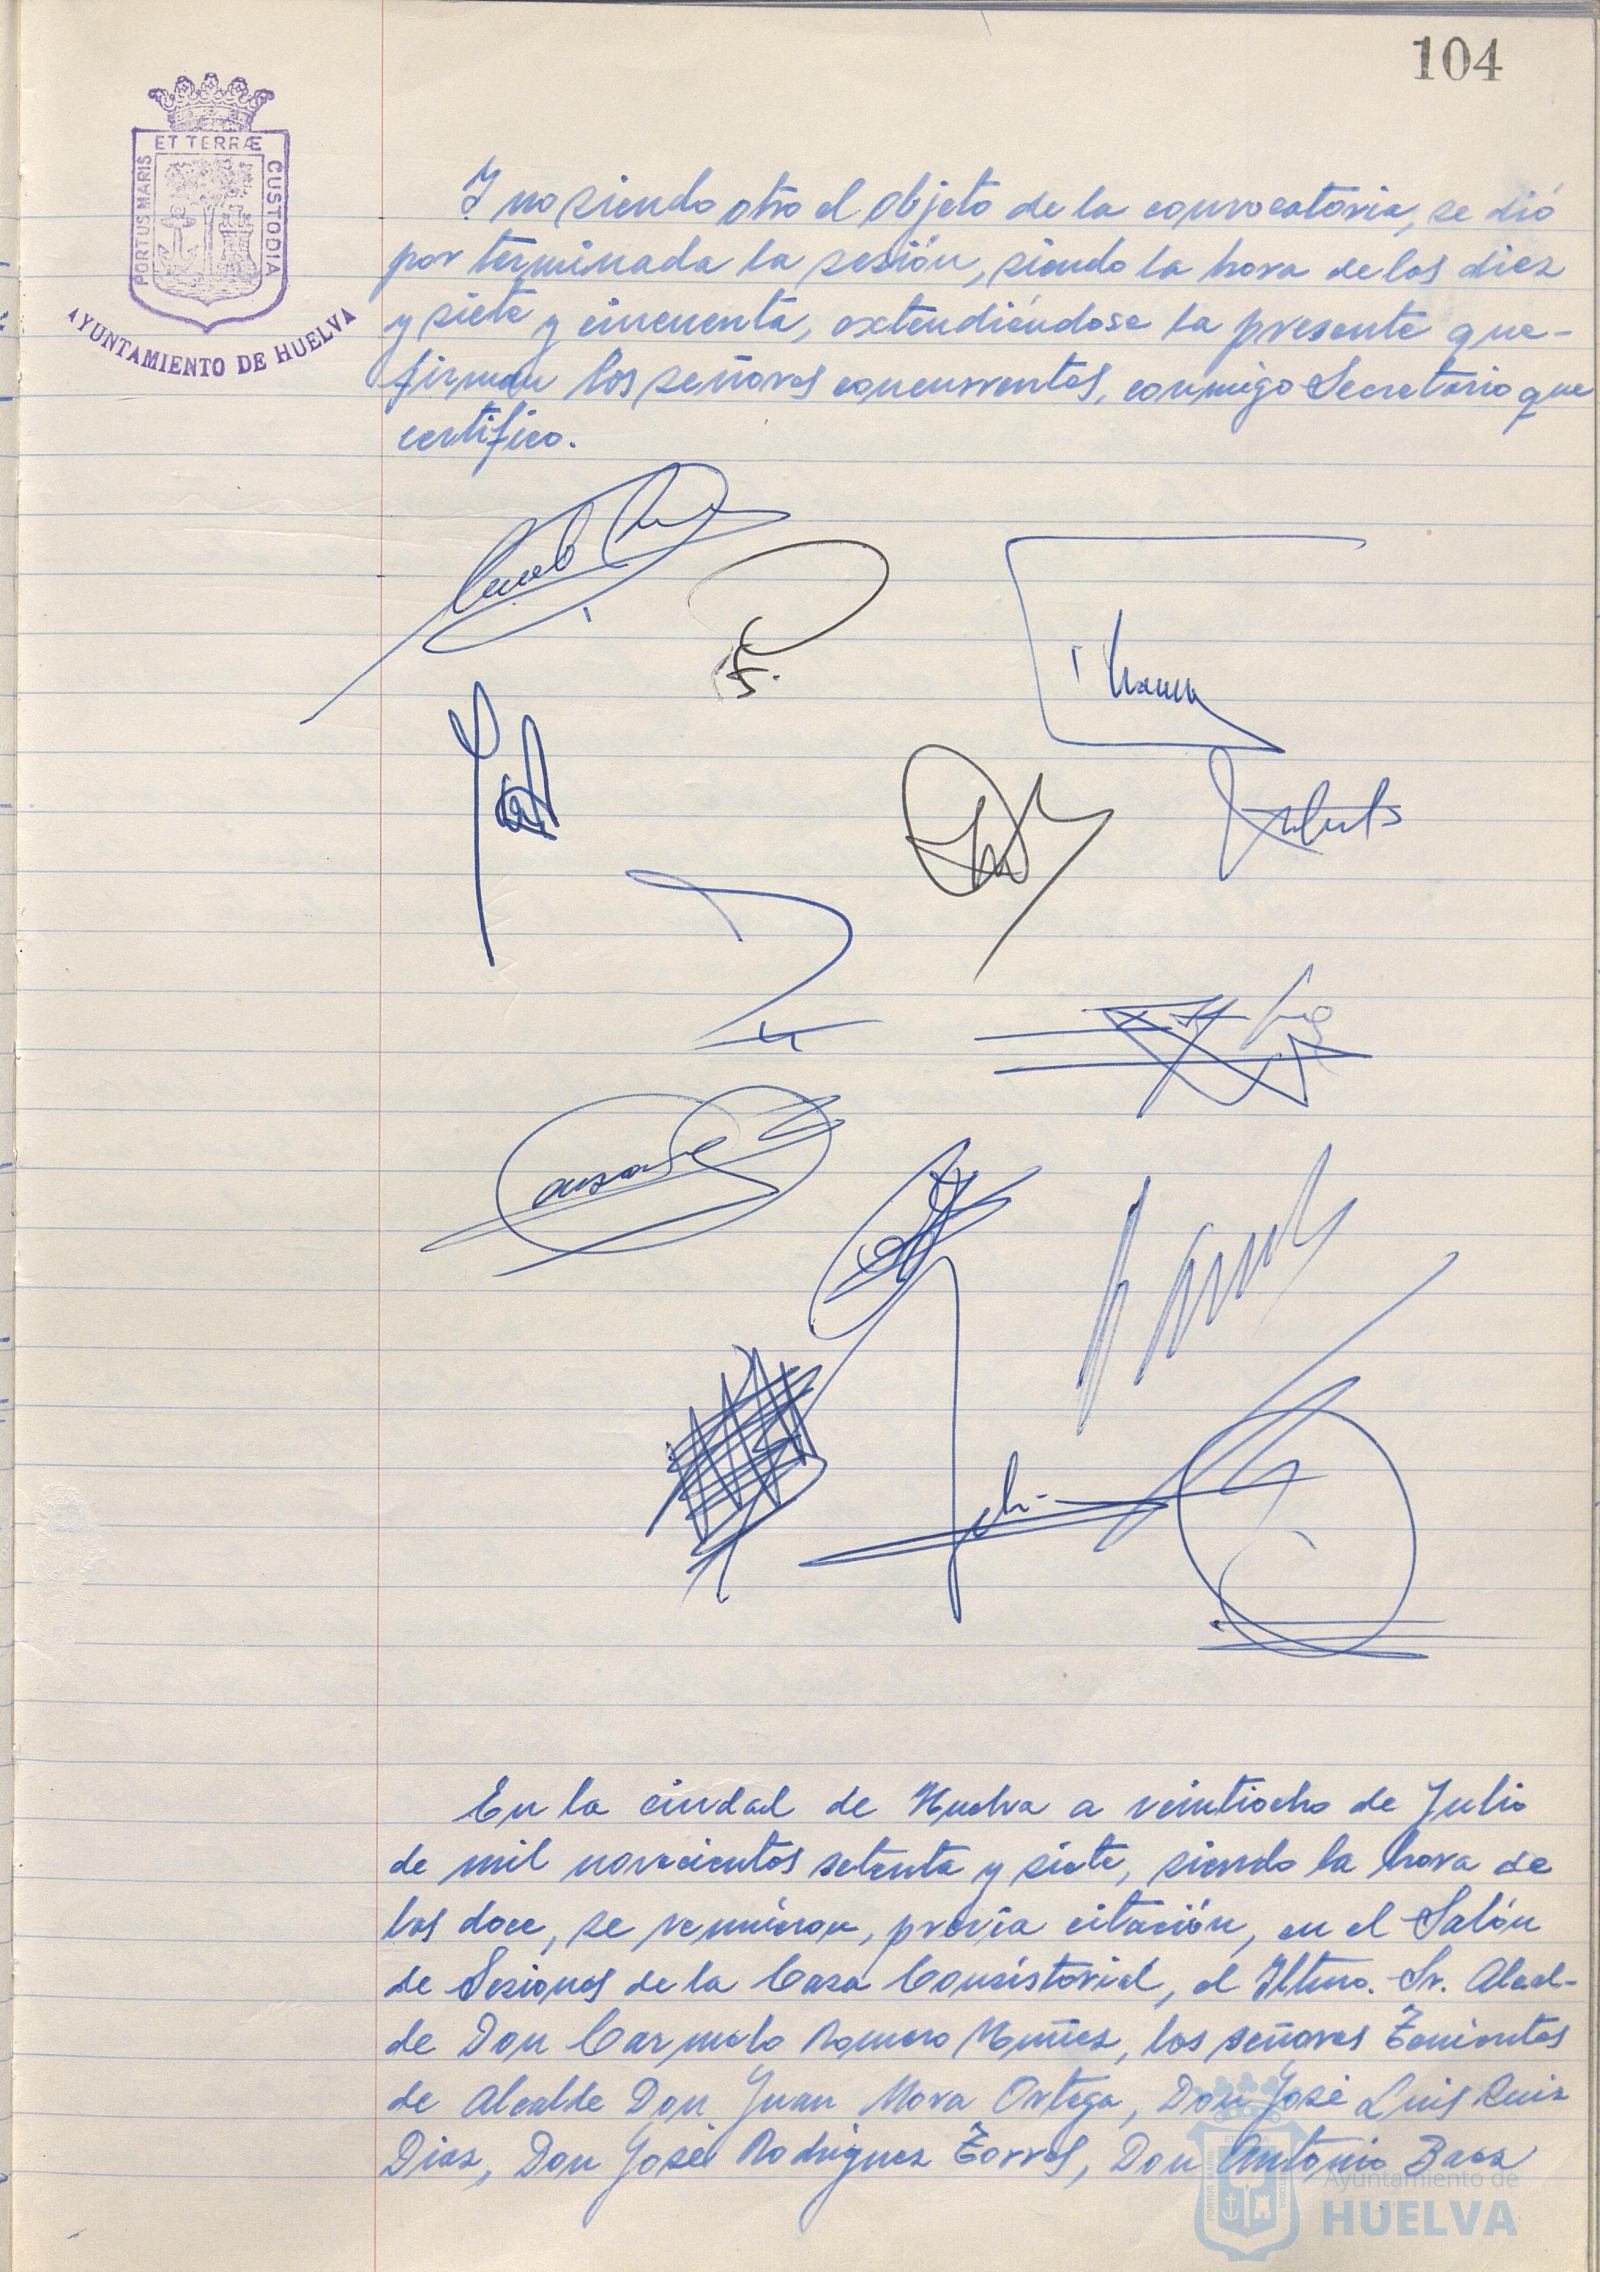 104
ET TERRÆ
PORTUS MARIS
CUSTODIA
AYUNTAMIENTO DE HUELVA
Y no siendo otro el objeto de la convocatoria, se dió
por terminada la sesión, siendo la hora de las diez
y siete y cincuenta, extendiéndose la presente que-
firman los señores concurrentes, conmigo Secretario que
certifico.
En la ciudad de Huelva a veintiocho de Julio
de mil novecientos setenta y siete, siendo la hora de
las doce, se reunieron, previa citación, en el Salón
de Sesiones de la Casa Consistorial, el Iltmo. Sr. Alcal-
de Don Carmelo Romero Núñez, los señores Tenientes
de Alcalde Don Juan Mora Ortega, Don José Luis Ruiz
Diaz, Don José Rodriguez Torres, Don Antonio Baez
Ayuntamiento de
HUELVA